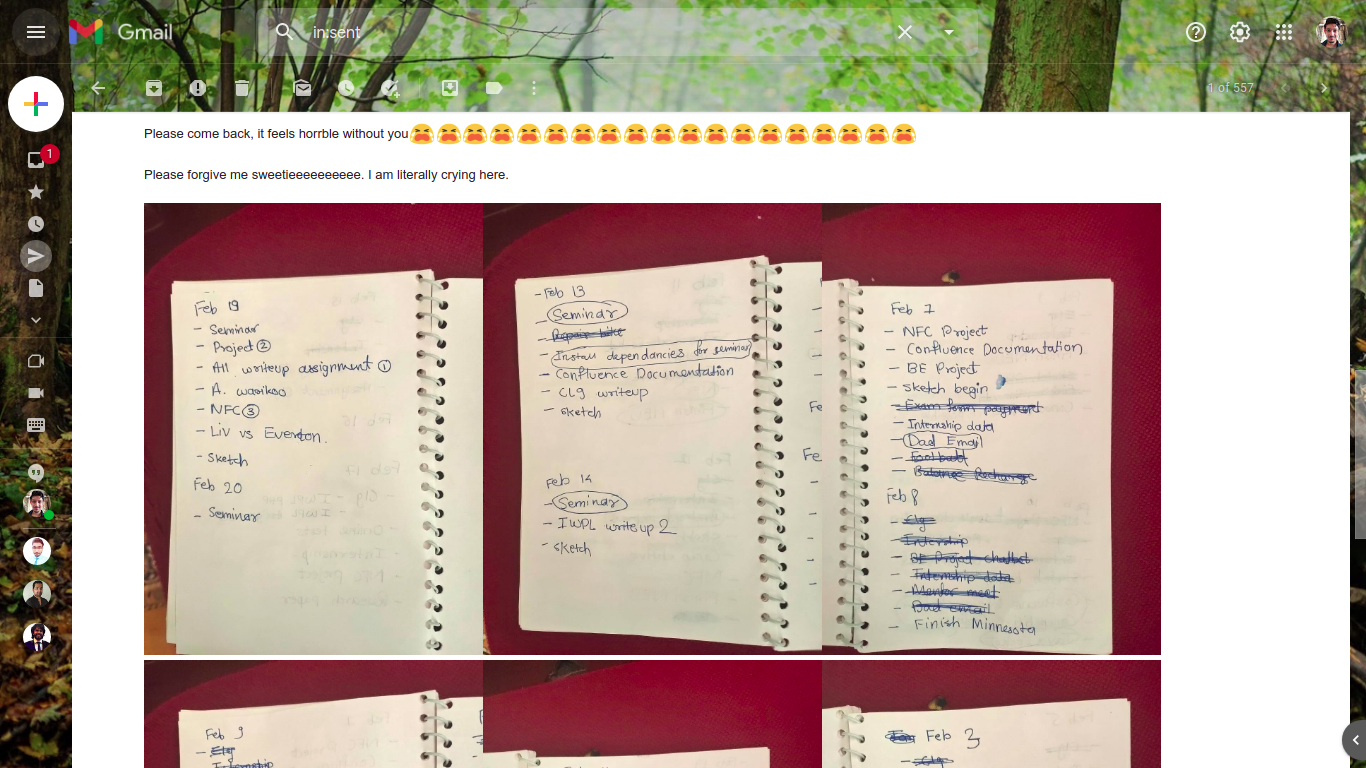 Gmail
in:sent
1 of 557
1
Please come back, it feels horrble without you😫😫😫😫😫😫😫😫😫😫😫😫😫😫😫😫😫😫😫
Please forgive me sweetieeeeeeeeee. I am literally crying here.
Feb 19
- Seminar
- Project ②
- All writeup assignment ①
- NFC ③
- Liv vs Everton.
- Sketch
Feb 20
- Seminar
- Feb 13
- Seminar
- Repair bike
- Install dependancies for seminar
- Confluence Documentation
- Clg writeup
- sketch
Feb 14
- Seminar
- IWPL writeup 2
- sketch
Fe
Fe
Feb 7
- NFC Project
- Confluence Documentation
- BE Project
- sketch begin
- Exam form payment
- Internship data
- Dad Email
- Football
- Balance Recharge
Feb 8
- Clg
- Internship
- BE Project chatbot
- Internship data
- Mentor meet
- Dad email
- Finish Minnesota
Feb 9
- Clg
Internship
Feb 3
- Clg